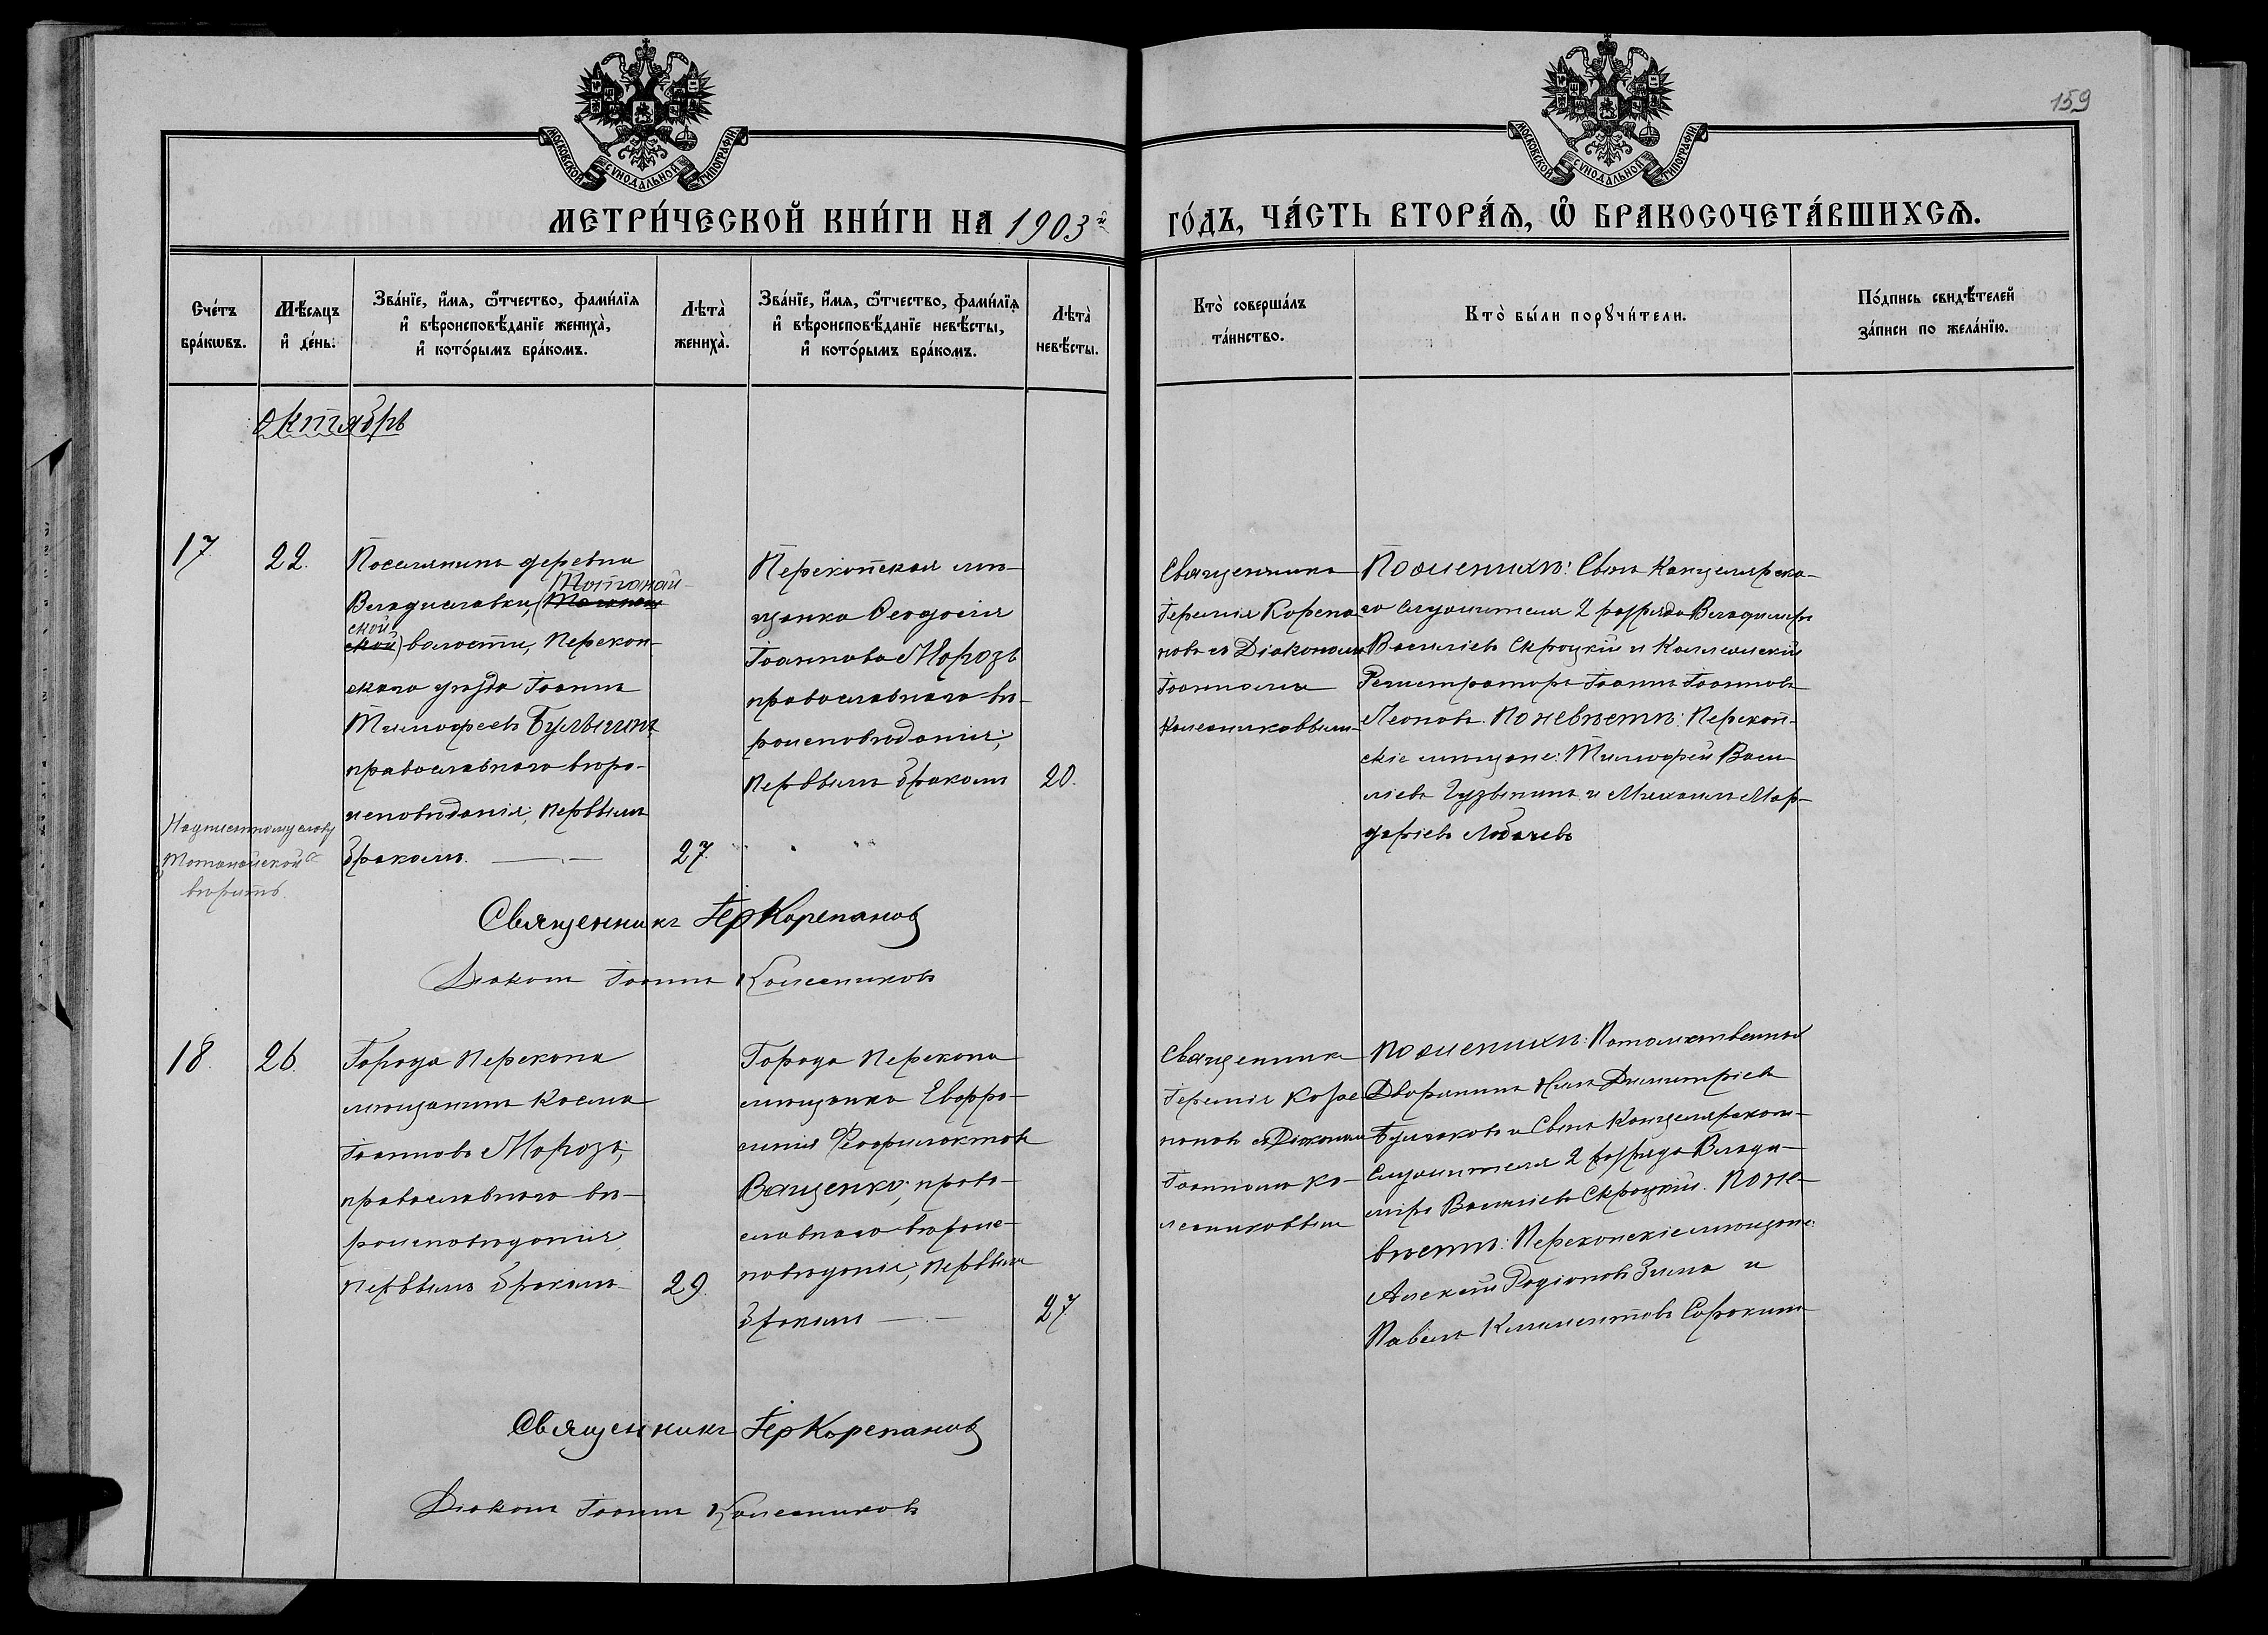 159
МОСКОВСКОЙ СѴНОДАЛЬНОЙ ТИПОГРАФІИ
МОСКОВСКОЙ СѴНОДАЛЬНОЙ ТИПОГРАФІИ
МЕТРИ́ЧЕСКОЙ КНИ́ГИ НА 1903й ГО́ДЪ, ЧА́СТЬ ВТОРА́Ѧ, Ѽ БРАКОСОЧЕТА́ВШИХСѦ.
Сче́тъ
бра́кѡвъ.
Мѣ́сяцъ
и҆ де́нь.
Зва́нїе, и҆́мя, ѻ҆́тчество, фами́лїя
и҆ вѣроисповѣ́данїе жениха̀,
и҆ кото́рымъ бра́комъ.
Лѣта̀
жениха̀.
Зва́нїе, и҆́мя, ѻ҆́тчество, фами́лїя
и҆ вѣроисповѣ́данїе невѣ́сты,
и҆ кото́рымъ бра́комъ.
Лѣта̀
невѣ́сты.
Кто̀ соверша́лъ
та́инство.
Кто̀ бы́ли порꙋчи́тели.
По́дпись свидѣ́телей
за́писи по жела́нїю.
Октябрь
17
22.
Поселянинъ деревни
Тотанай-
Владиславки, (
ской
ской) волости, Перекоп-
скаго уѣзда Іоаннъ
Тимофеевъ Булыгинъ,
православнаго вѣро-
исповѣданія, первымъ
бракомъ.
27.
Надписанному слову
"Тотанайской"
вѣрить.
Перекопская мѣ-
щанка Ѳеодосія
Іоаннова Морозъ
православнаго вѣ-
роисповѣданія,
первымъ бракомъ
20.
Священникъ
Іеремія Корепа-
новъ съ Діакономъ
Іоанномъ
Колесниковымъ
По женихѣ: Сынъ Канцелярска-
го служителя 2 разряда Владиміръ
Василіевъ Скроцкій и Коллежскій
Регистраторъ Іоаннъ Іоанновъ
Леоновъ. По невѣстѣ: Перекоп-
скіе мѣщане: Тимофей Васи-
ліевъ Гузынинъ и Михаилъ Мар-
даріевъ Лобачевъ
Священникъ Іер Корепановъ
Діаконъ Іоаннъ Колесниковъ
18.
26.
Города Перекопа
мѣщанинъ Косма
Іоанновъ Морозъ,
православнаго вѣ-
роисповѣданія,
первымъ бракомъ
29.
Города Перекопа
мѣщанка Евфро-
синія Ѳеофилактова
Ващенко, право-
славнаго вѣроис-
повѣданія, первымъ
бракомъ
27.
Священникъ
Іеремія Коре-
пановъ съ Діакономъ
Іоанномъ Ко-
лесниковымъ
По женихѣ: Потомственный
Дворянинъ Нилъ Димитріевъ
Булгаковъ и Сынъ Канцелярскаго
Служителя 2 разряда Влади-
міръ Василіевъ Скроцкій. По не-
вѣстѣ: Перекопскіе мѣщане:
Алексѣй Родіоновъ Зима и
Павелъ Климентовъ Сорокинъ
Священникъ Іер Корепановъ
Діаконъ Іоаннъ Колесниковъ